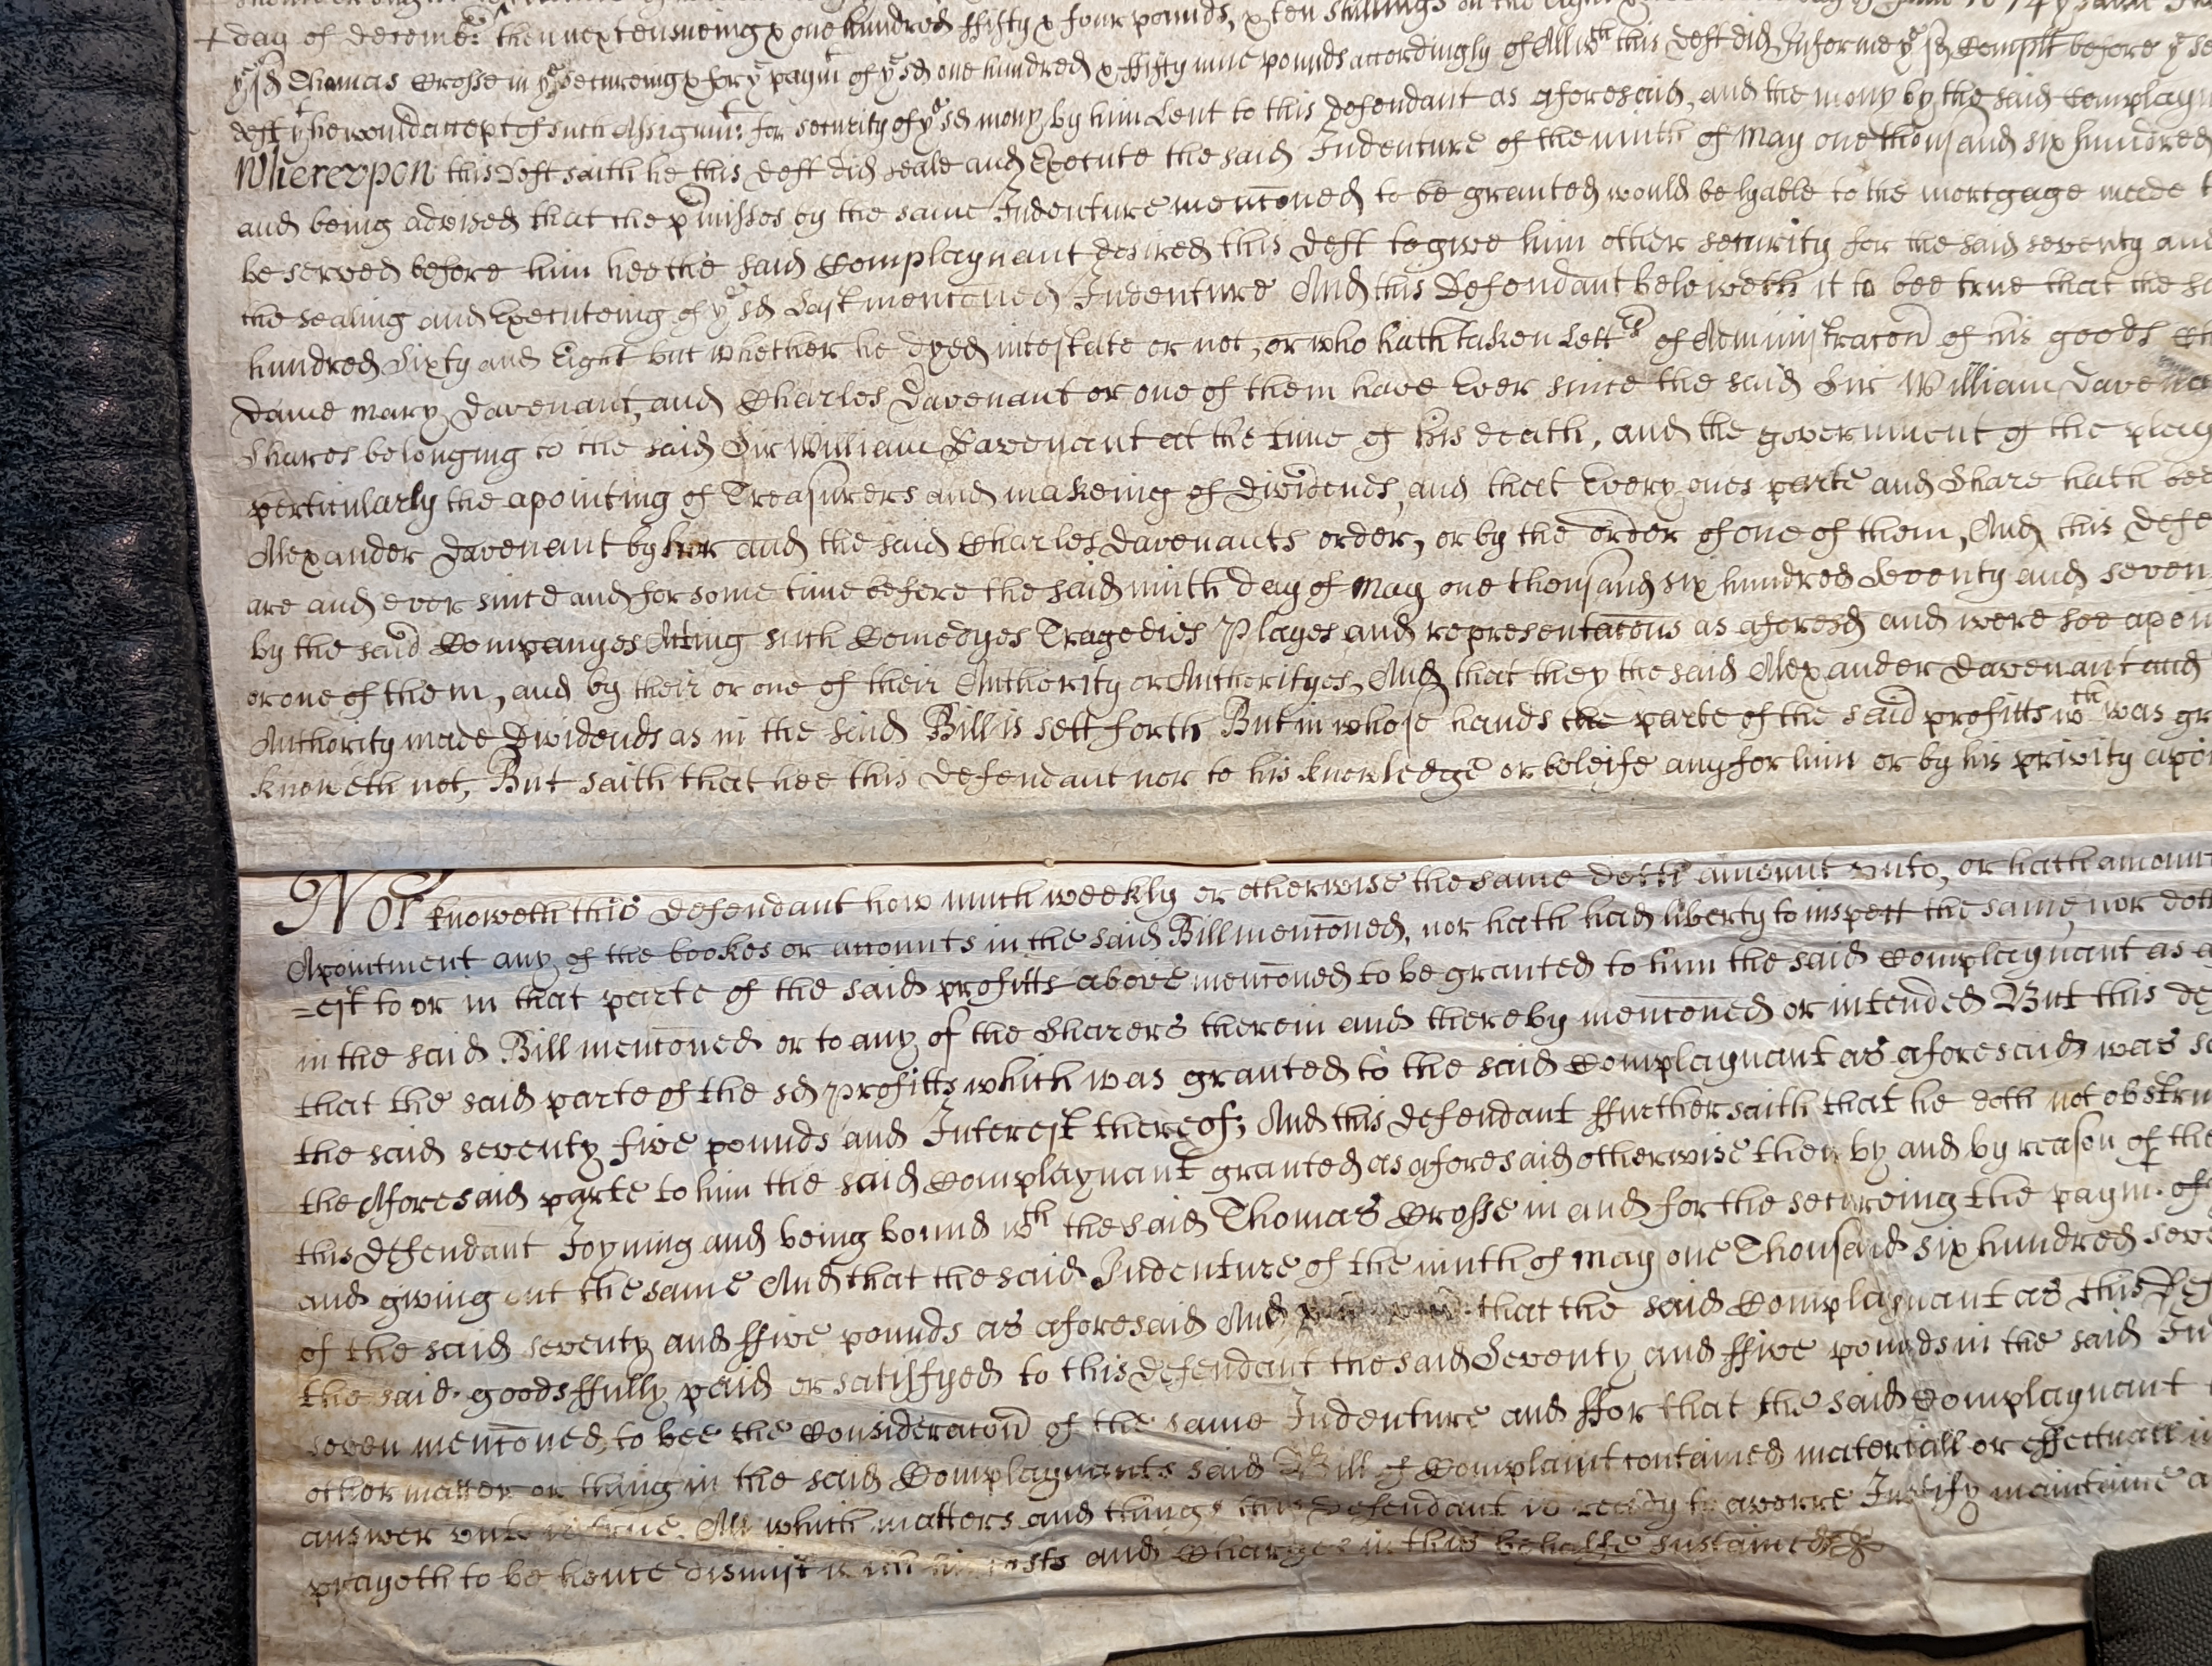 day of decemb:r then next ensueing & one hundred ffifty & four pounds, & ten shillings on the Eight
ye sd Thomas Crosse in ye secureing & for ye paymt of ye sd one hundred & ffifty nine pounds accordingly of All wch this deft did Informe ye sd Complt before ye
deft yt he would accept of such Assignmt: for security of ye sd mony by him Lent to this defendant as aforesaid, and the mony by the said Complayn
Wherevpon this Deft saith he this deft did seale and Execute the said Indenture of the ninth of May one thousand six hundred
and being advised that the pmisses by the same Indenture menconed to be granted would be lyable to the mortgage made
be served before him hee the said Complaynant desired this deft to give him other security for the said seventy and
the sealing and Executeing of ye sd Last menconed Indenture And this Defendant beleiveth it to bee true that the
hundred Sixty and Eight but whether he dyed intestate or not, or who hath taken Lettrs of Administracon of his goods
dame mary Davenant, and Charles Davenant or one of them have Ever since the said Sir William Davena
Shares belonging to the said Sir William Davenant at the time of his death, and the government of the play
perticularly the apointing of Treasurers and makeing of dividends, and that Every ones parte and Share hath bee
Alexander Davenant by her and the said Charles Davenants order, or by the order of one of them, And this Defe
are and ever since and for some time before the said ninth day of May one thousand six hundred Seventy and seven
by the said Companyes Acting such Comedyes Tragedies Playes and representacons as aforesd and were soe apoin
or one of them, and by their or one of their Authority or Authorityes, And that they the said Alexander Davenant and
Authority made Dividends as in the said Bill is sett forth But in whose hands the parte of the said profitts wch was gr
knoweth not, But saith that hee this Defendant nor to his knowledge or beleife any for him or by his privity apoi
Nor knoweth this Defendant how much weekly or otherwise the same doth amount vnto, or hath amount
Apointment any of the bookes or accounts in the said Bill menconed, nor hath had liberty to inspect the same, nor doth
=est to or in that parte of the said profitts above menconed to be granted to him the said Complaynant as a
in the said Bill menconed or to any of the Sharers therein and thereby menconed or intended But this de
that the said parte of the sd profitts which was granted to the said Complaynant as aforesaid was
the said seventy five pounds and Interest thereof; And this defendant ffurther saith that he doth not obstru
the Aforesaid parte to him the said Complaynant granted as aforesaid otherwise then by and by reason of the
this Defendant Joyning and being bound wth the said Thomas Crosse in and for the secureing the paymt of
and giveing out the same And that the said Indenture of the ninth of May one Thousand six hundred seve
of the said seventy and ffive pounds as aforesaid And that the said Complaynant as this Def
the said goods ffully paid or satisfyed to this defendant the said Seventy and ffive pounds in the said In
seven menconed, to bee the Consideracon of the same Indenture and ffor that the said Complaynant
other matter or thing in the said Complaynants said Bill of Complaint contained materiall or effectuall
answer vnto is true. All which matters and things this Defendant is ready to averre Justify maintaine a
prayeth to be hence dismist with his costs and Charges in this behalfe sustained &c